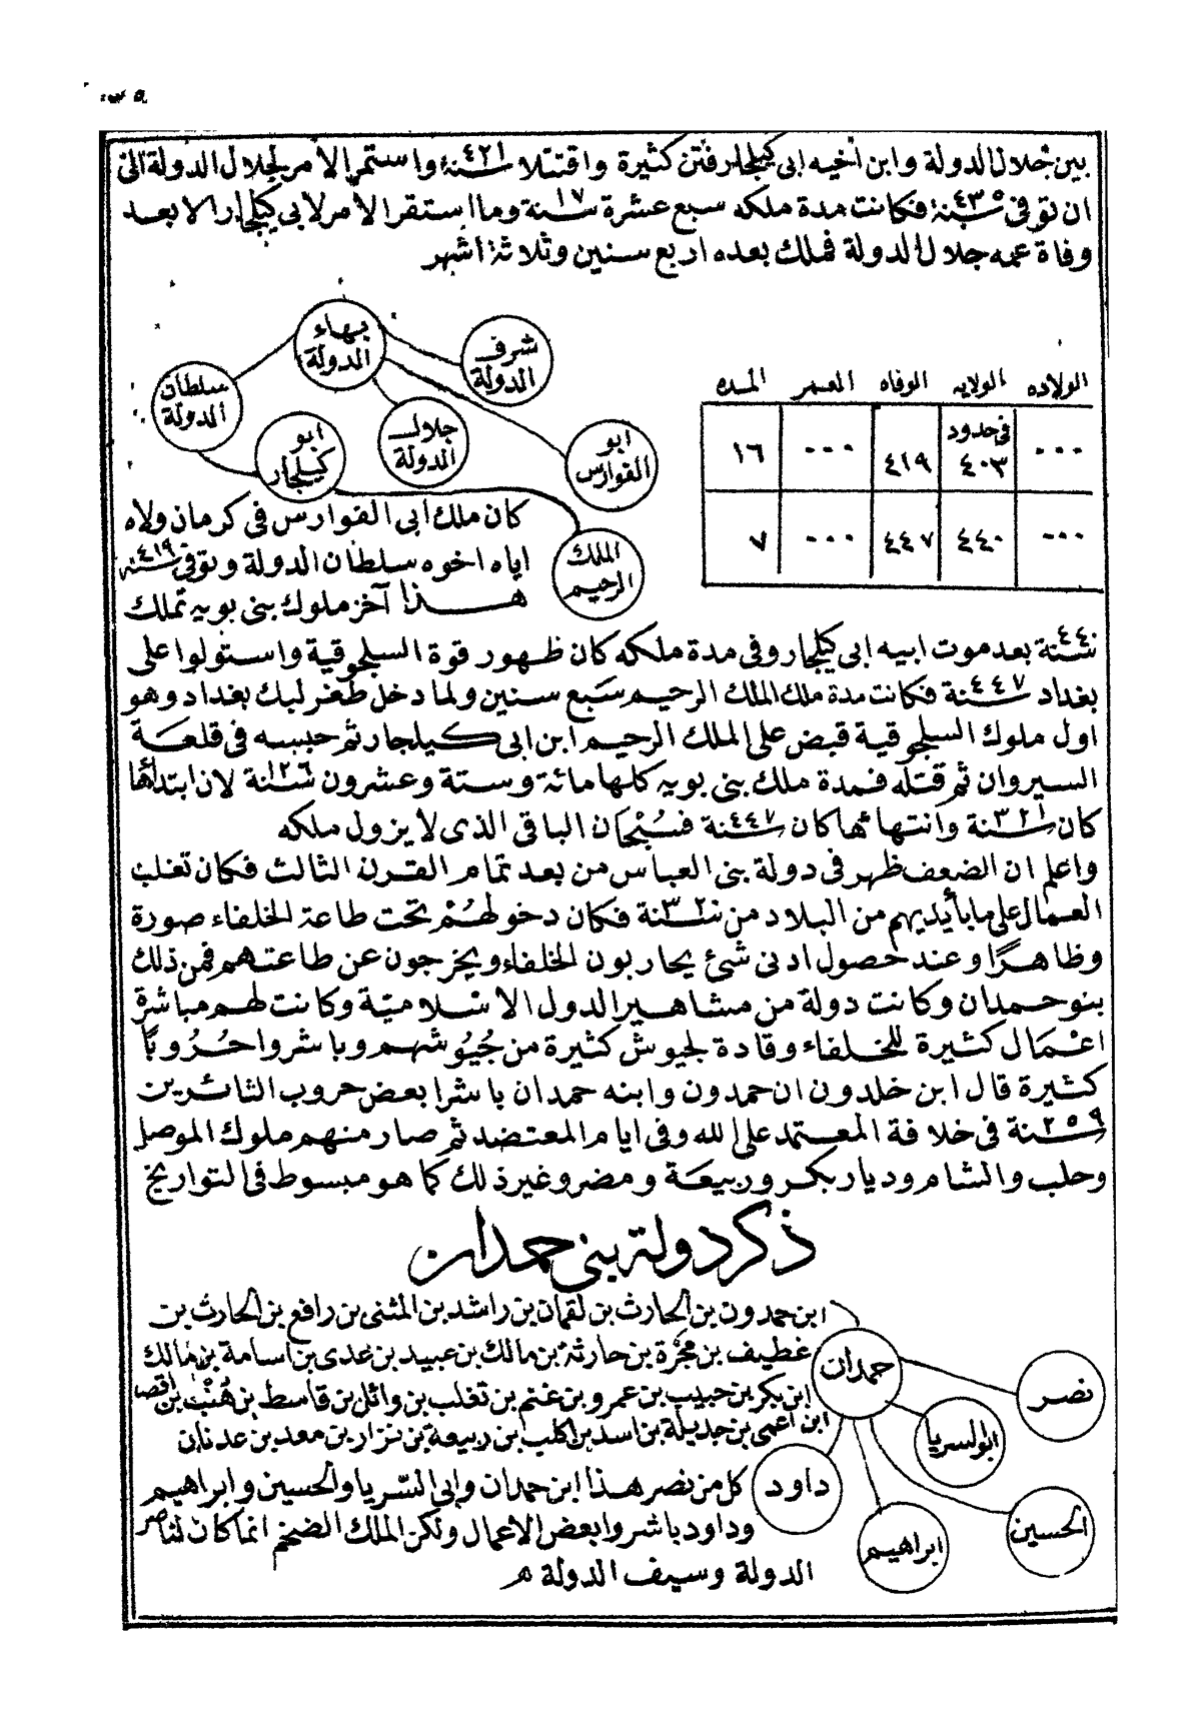 بين جلال الدولة وابن أخيه ابى كيلجار فتن كثيرة واقتتلا سنة ٤٢١ واستمر الامر لجلال الدولة الى
ان توفى سنة ٤٣٥ فكانت مدة ملكه سبع عشرة سنة ١٧ وما استقر الامر لابى كيلجار الا بعد
وفاة عمه جلال الدولة فملك بعده اربع سنين وثلاثة أشهر
بهاء الدولة
شرف الدولة
سلطان الدولة
جلال الدولة
ابو كيلجار
ابو الفوارس
الملك الرحيم
الولاده الولايه الوفاه العمر المده
٠٠٠ فى حدود ٤٠٣ ٤١٩ ٠٠٠ ١٦
٠٠٠ ٤٤٠ ٤٤٧ ٠٠٠ ٧
كان ملك ابى الفوارس فى كرمان ولاه
اياه اخوه سلطان الدولة وتوفى سنة ٤١٩
هذا آخر ملوك بنى بويه تملك
سنة ٤٤٠ بعد موت ابيه ابى كيلجار وفى مدة ملكه كان ظهور قوة السلجوقية واستولوا على
بغداد سنة ٤٤٧ فكانت مدة ملك الملك الرحيم سبع سنين ولما دخل طغرلبك بغداد وهو
اول ملوك السلجوقية قبض على الملك الرحيم ابن ابى كيلجار ثم حبسه فى قلعة
السيروان ثم قتله فمدة ملك بنى بويه كلها مائة وستة وعشرون سنة ١٢٦ لان ابتدائها
كان سنة ٣٢١ وانتهائها كان سنة ٤٤٧ فسُبْحان الباقى الذى لا يزول ملكه
واعلم ان الضعف ظهر فى دولة بنى العباس من بعد تمام القرن الثالث فكان تغلب
العمال على ما بأيديهم من البلاد من سنة ٣٢٠ فكان دخولهُمْ تحت طاعة الخلفاء صورة
وظاهرًا وعند حصول ادنى شئ يحاربون الخلفاء ويخرجون عن طاعتهم فمن ذلك
بنو حمدان وكانت دولة من مشاهير الدول الاسْلاميّة وكانت لهم مباشرة
اعْمال كثيرة للخلفاء وقادة لجيوش كثيرة من جُيُوشهم وباشروا حُرُوبًا
كثيرة قال ابن خلدون ان حمدون وابنه حمدان باشرا بعض حروب الثائرين
سنة ٢٥٩ فى خلافة المعتمد على الله وفى ايام المعتضد ثم صار منهم ملوك الموصل
وحلب والشام وديار بكر وربيعة ومضر وغير ذلك كما هو مبسوط فى التواريخ
ذكر دولة بنى حمدان
ابن حمدون بن الحارث بن لقمان بن راشد بن المثنى بن رافع بن الحارث بن
غطيف بن مجرّة بن حارثة بن مالك بن عبيد بن عدى بن اسامة بن مالك
ابن بكر بن حبيب بن عمرو بن غنم بن تغلب بن وائل بن قاسط بن هُنْب بن اقصا
ابن اعمى بن جديلة بن اسد بن اكلب ابن ربيعة بن نزار بن معد بن عدنان
حمدان
نصر
ابو السريا
داود
الحسين
ابراهيم
كل من نصر هذا ابن حمدان وابى السّريا والحسين وابراهيم
وداود باشروا بعض الاعمال ولكن الملك الضخم انما كان لناصر
الدولة وسيف الدولة